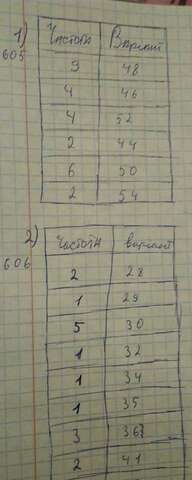 1)
605
Частота Вариант
3 48
4 46
4 52
2 44
6 50
2 54
2)
606
Частота вариант
2 28
1 29
5 30
1 32
1 34
1 35
3 36
2 41